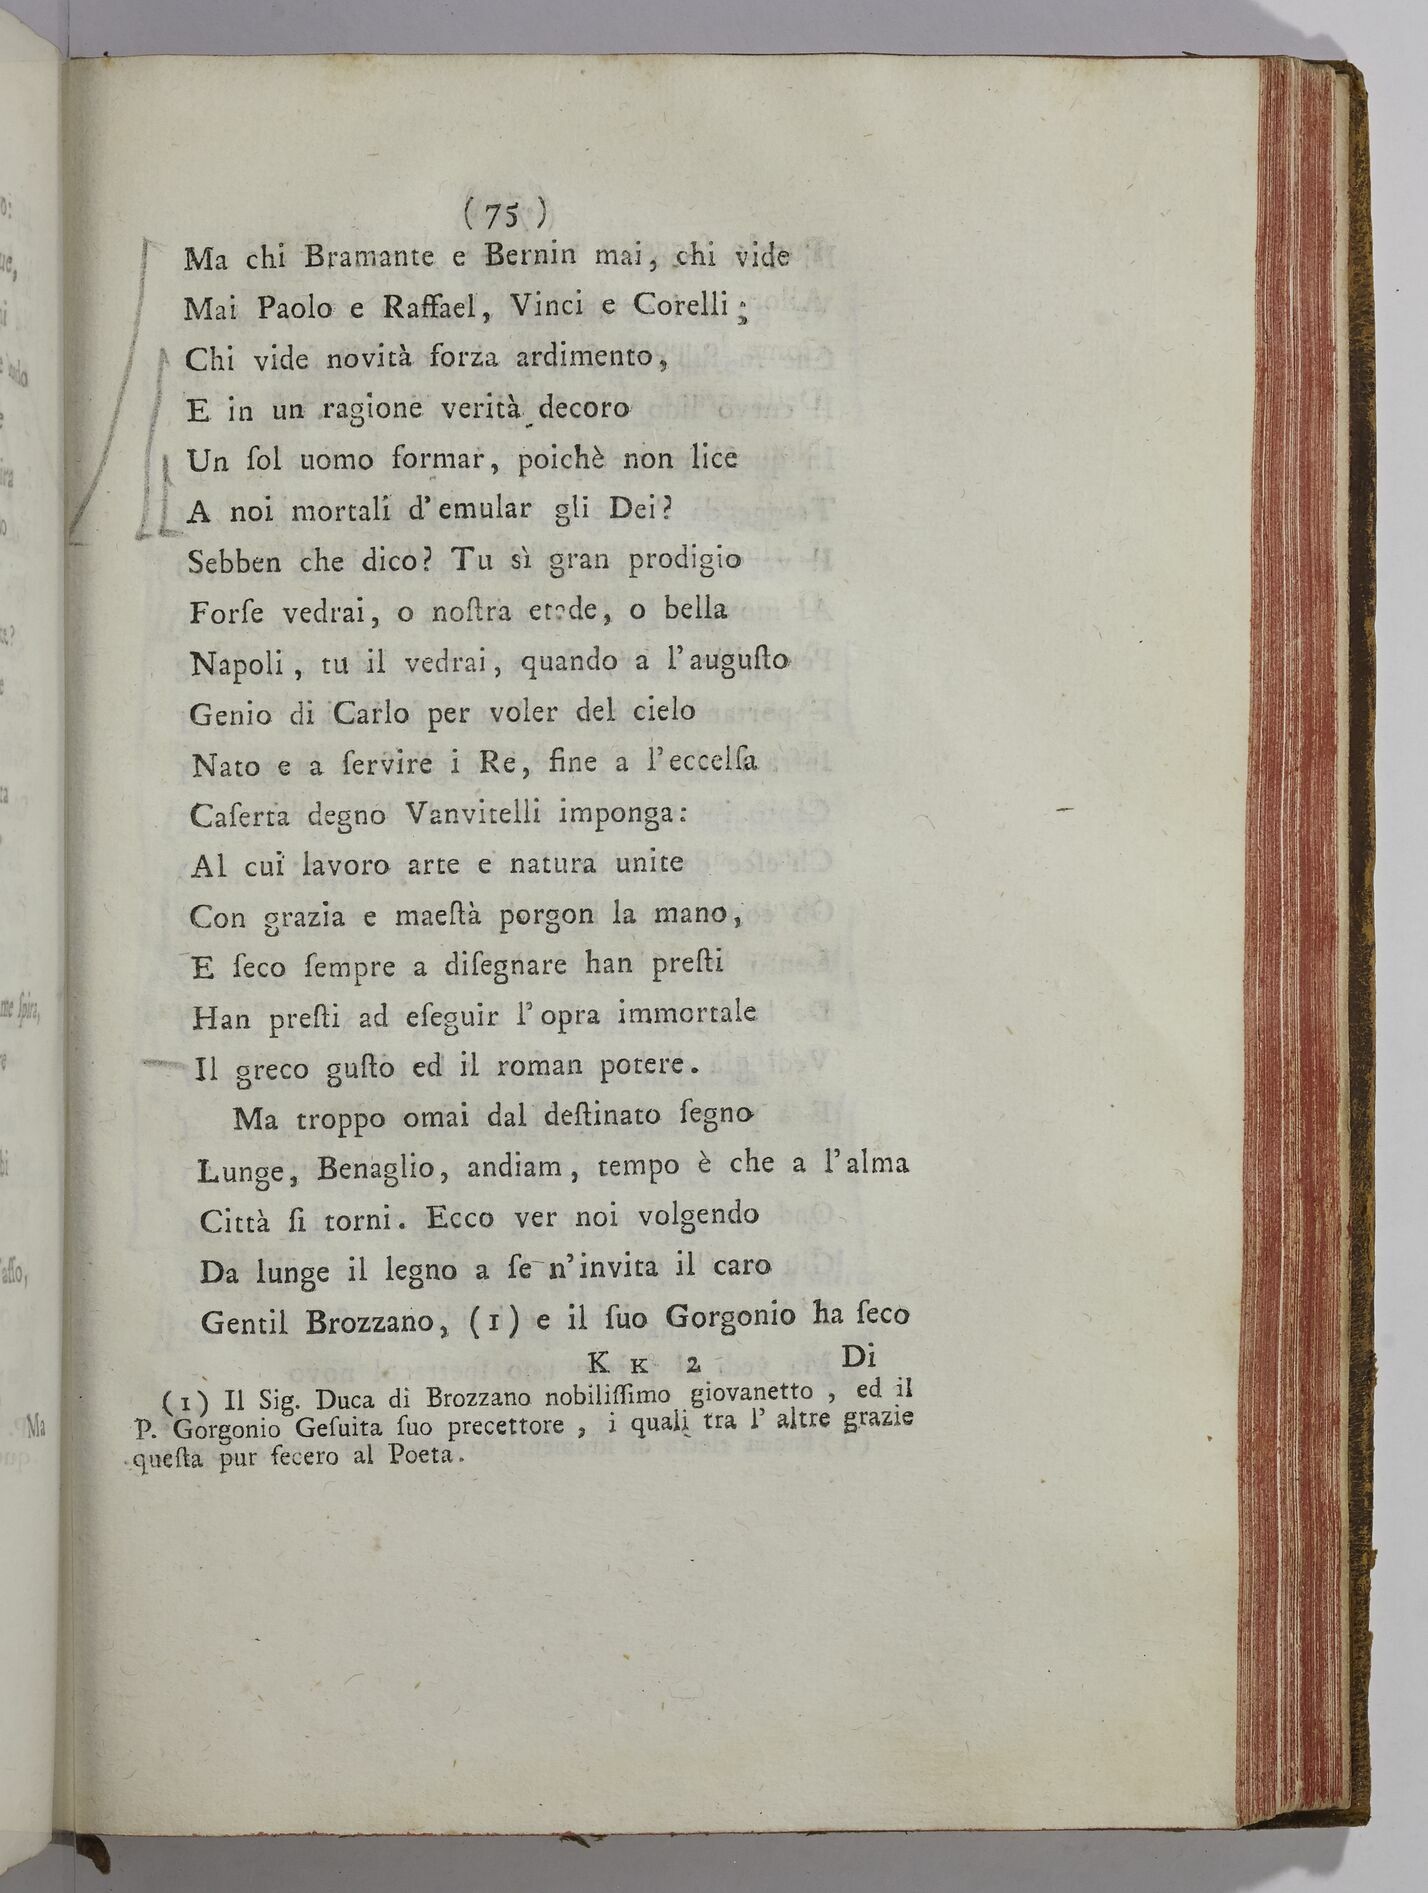 ( 75 )
Ma chi Bramante e Bernin mai, chi vide
Mai Paolo e Raffael, Vinci e Corelli;
Chi vide novità forza ardimento,
E in un ragione verità decoro
Un ſol uomo formar, poichè non lice
A noi mortali d'emular gli Dei?
Sebben che dico? Tu sì gran prodigio
Forſe vedrai, o noſtra etade, o bella
Napoli, tu il vedrai, quando a l'auguſto
Genio di Carlo per voler del cielo
Nato e a ſervire i Re, fine a l'eccelſa
Caſerta degno Vanvitelli imponga:
Al cui lavoro arte e natura unite
Con grazia e maeſtà porgon la mano,
E ſeco ſempre a diſegnare han preſti
Han preſti ad eſeguir l'opra immortale
Il greco guſto ed il roman potere.
Ma troppo omai dal deſtinato ſegno
Lunge, Benaglio, andiam, tempo è che a l'alma
Città ſi torni. Ecco ver noi volgendo
Da lunge il legno a ſe n'invita il caro
Gentil Brozzano, (1) e il ſuo Gorgonio ha ſeco
K K 2 Di
(1) Il Sig. Duca di Brozzano nobiliſſimo giovanetto, ed il
P. Gorgonio Geſuita ſuo precettore, i quali tra l'altre grazie
queſta pur fecero al Poeta.